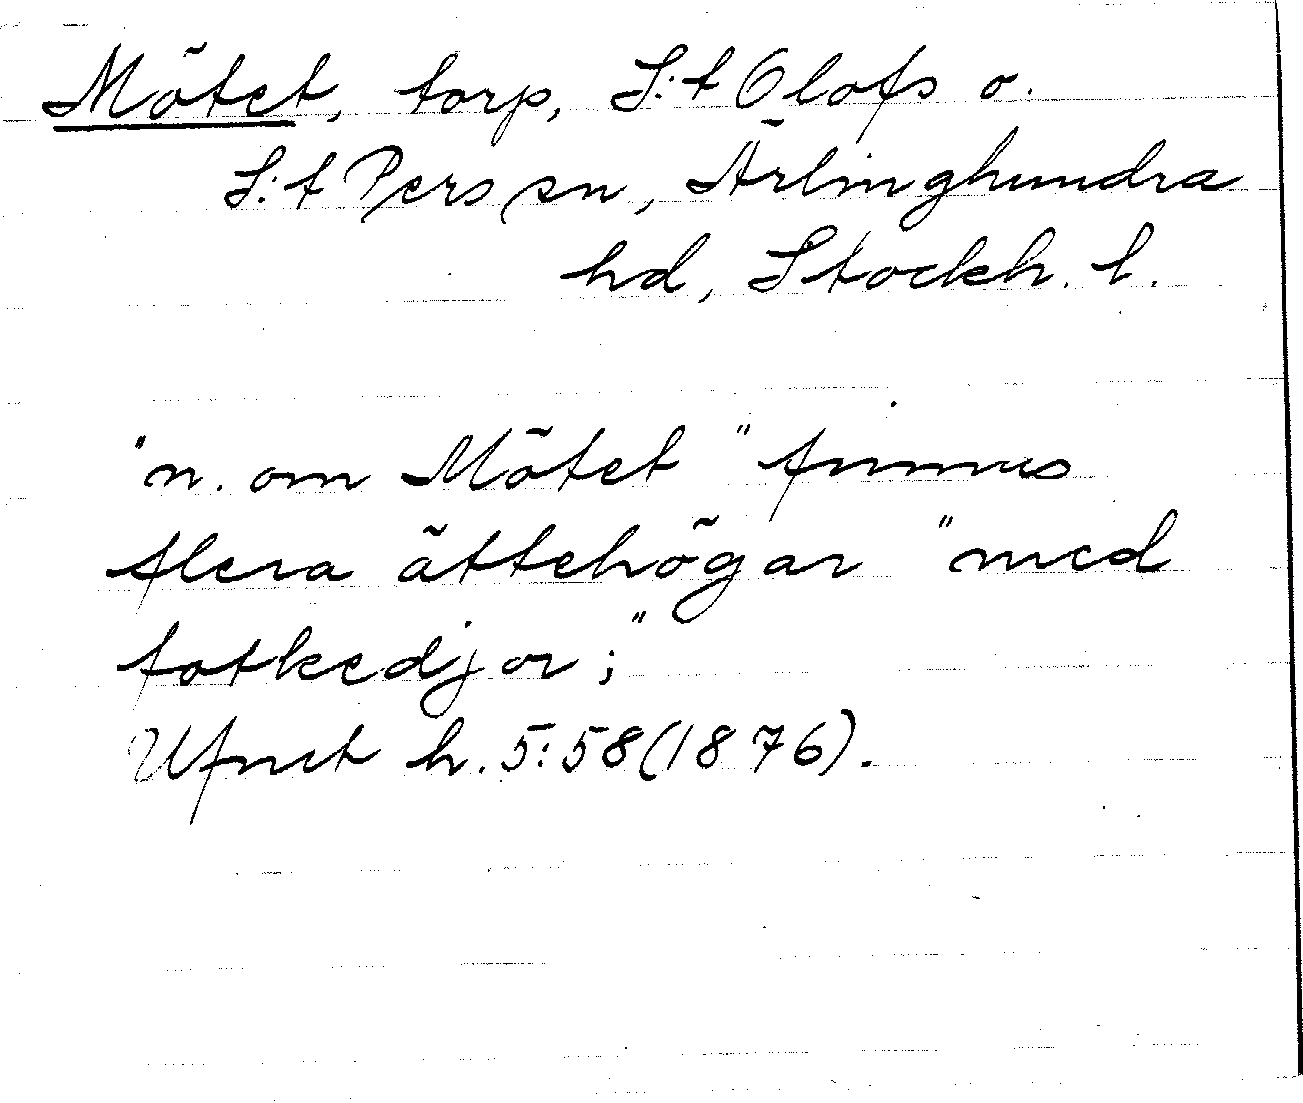 Mötet, torp, S:t Olofs o.
S:t Pers sn, Ärlinghundra
hd, Stockh. l.
"n. om Mötet" finnes
flera ättehögar "med
fotkedjor;"
Ufmct h. 5:58 (1876).